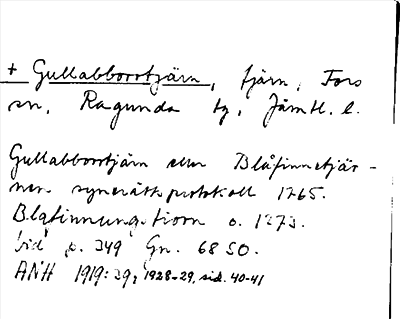 + Gullabborrtjärn, tjärn, Fors
sn, Ragunda tg, Jämtl. l.
Gullabborrtjärn eller Blåfinnetjär-
nen synerättsprotokoll 1765.
Blåfinnungstiorn o. 1273.
ibid p. 349 Gn. 6850.
ANH 1919:29; 1928-29, sid. 40-41